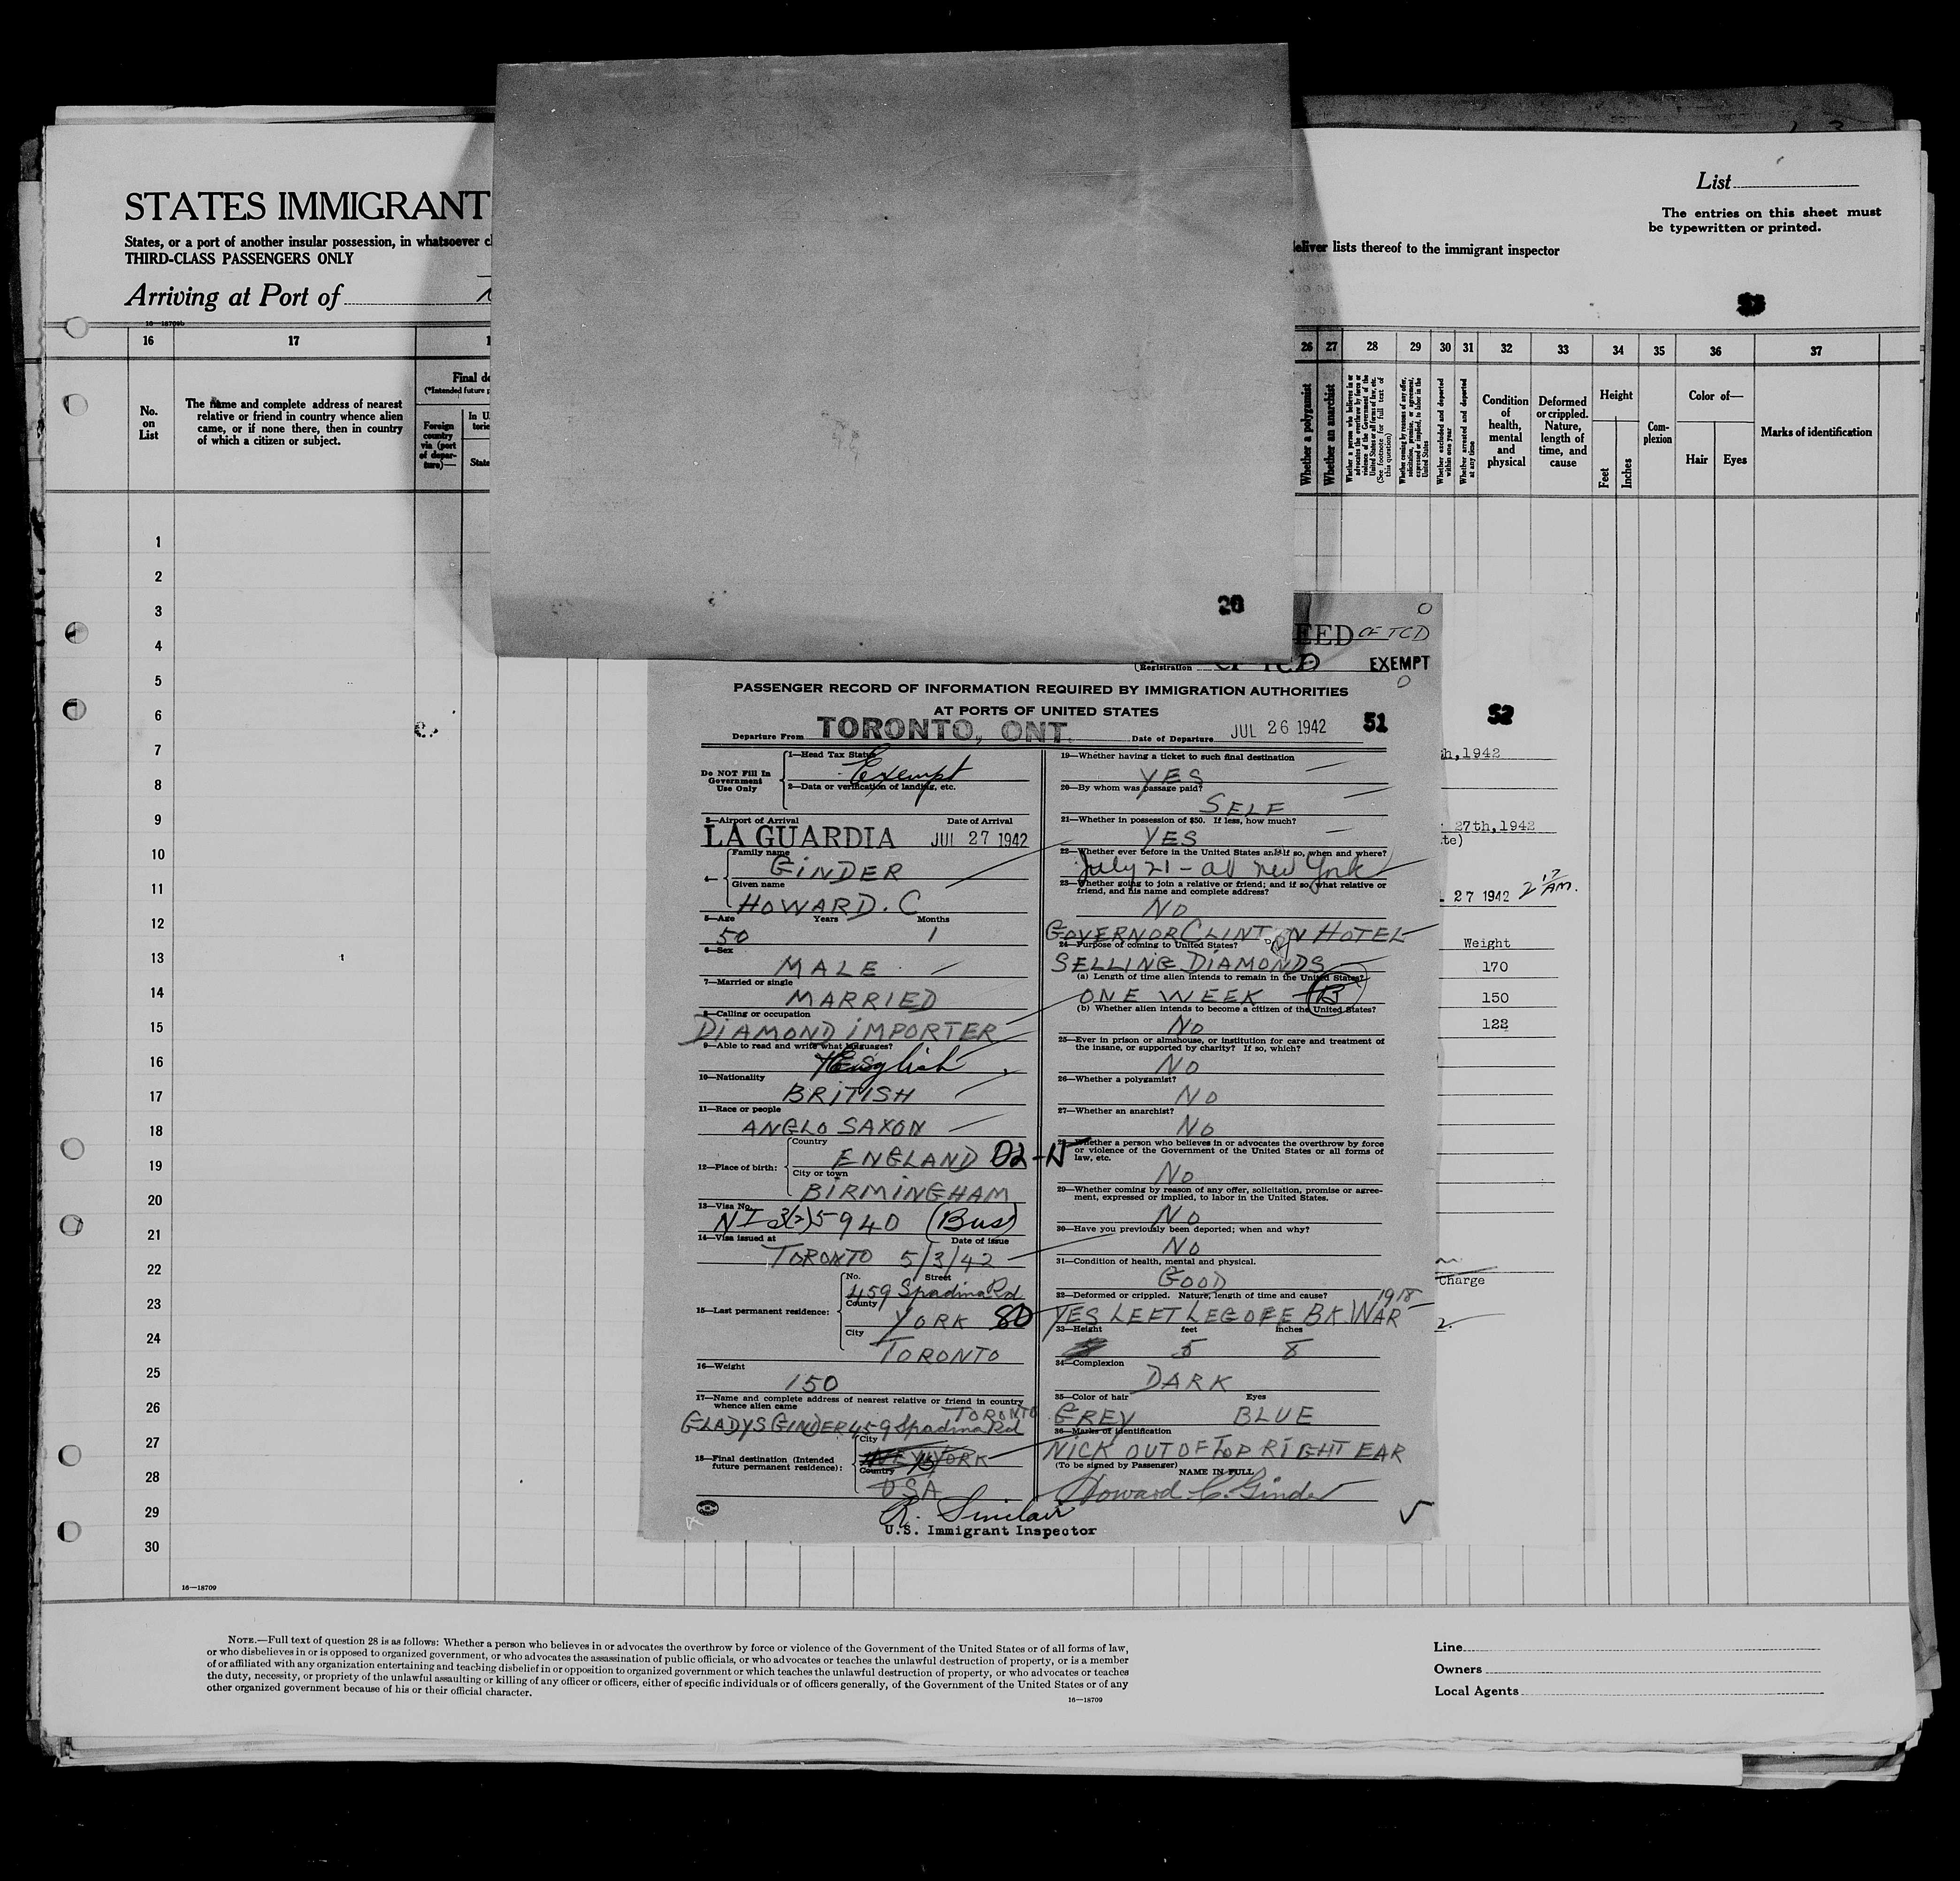 STATES IMMIGRANT
States, or a port of another insular possession, in whatsoever
THIRD-CLASS PASSENGERS ONLY
Arriving at Port of
16—18709b
deliver lists thereof to the immigrant inspector
List
The entries on this sheet must
be typewritten or printed.
16 17 26 27 28 29 30 31 32 33 34 35 36 37
No.
on
List
The name and complete address of nearest
relative or friend in country whence alien
came, or if none there, then in country
of which a citizen or subject.
Final
(*Intended future
Foreign
country
via (port
of depar-
ture)—
In U.
State
Whether a polygamist
Whether an anarchist
Whether a person who believes in or
advocates the overthrow by force or
violence of the Government of the
United States or all forms of law, etc.
(See footnote for full text of
this question)
Whether coming by reason of any offer,
solicitation, promise, or agreement,
expressed or implied, to labor in the
United States
Whether excluded and deported
within one year
Whether arrested and deported
at any time
Condition
of
health,
mental
and
physical
Deformed
or crippled.
Nature,
length of
time, and
cause
Height
Feet
Inches
Com-
plexion
Color of—
Hair
Eyes
Marks of identification
1
2
3
4
5
6
7
8
9
10
11
12
13
14
15
16
17
18
19
20
21
22
23
24
25
26
27
28
29
30
16—18709
20
CF TCD
Registration
EXEMPT
PASSENGER RECORD OF INFORMATION REQUIRED BY IMMIGRATION AUTHORITIES
AT PORTS OF UNITED STATES
Departure From TORONTO, ONT. Date of Departure JUL 26 1942 51
Do NOT Fill In
Government
Use Only
1—Head Tax Status
Exempt
2—Data or verification of landing, etc.
3—Airport of Arrival Date of Arrival
LA GUARDIA JUL 27 1942
4—
Family name
GINDER
Given name
HOWARD. C
5—Age Years Months
50 1
6—Sex
MALE
7—Married or single
MARRIED
8—Calling or occupation
DIAMOND IMPORTER
9—Able to read and write what languages?
English
10—Nationality
BRITISH
11—Race or people
ANGLO SAXON
12—Place of birth:
Country
ENGLAND
City or town
BIRMINGHAM
13—Visa No.
NI 3(2) 5940 (Bus)
14—Visa issued at Date of issue
TORONTO 5/3/42
15—Last permanent residence:
No. Street
459 Spadina Rd
County
YORK 80
City
TORONTO
16—Weight
150
17—Name and complete address of nearest relative or friend in country
whence alien came
TORONTO
GLADYS GINDER 459 Spadina Rd
18—Final destination (Intended
future permanent residence):
City
NEW YORK
Country
USA
R. Sinclair
U.S. Immigrant Inspector
19—Whether having a ticket to such final destination
YES
20—By whom was passage paid?
SELF
21—Whether in possession of $50. If less, how much?
YES
22—Whether ever before in the United States and if so, when and where?
July 21 - at New York
23—Whether going to join a relative or friend; and if so, what relative or
friend, and his name and complete address?
NO
GOVERNOR CLINTON HOTEL
24—Purpose of coming to United States?
SELLING DIAMONDS
(a) Length of time alien intends to remain in the United States?
ONE WEEK B
(b) Whether alien intends to become a citizen of the United States?
NO
25—Ever in prison or almshouse, or institution for care and treatment of
the insane, or supported by charity? If so, which?
NO
26—Whether a polygamist?
NO
27—Whether an anarchist?
NO
28—Whether a person who believes in or advocates the overthrow by force
or violence of the Government of the United States or all forms of
law, etc.
NO
29—Whether coming by reason of any offer, solicitation, promise or agree-
ment, expressed or implied, to labor in the United States.
NO
30—Have you previously been deported; when and why?
NO
31—Condition of health, mental and physical.
GOOD
32—Deformed or crippled. Nature, length of time and cause?
1918
YES LEFT LEG OFF BK. WAR
33—Height feet inches
5 8
34—Complexion
DARK
35—Color of hair Eyes
GREY BLUE
36—Marks of identification
NICK OUT OF TOP RIGHT EAR
(To be signed by Passenger)
NAME IN FULL
Howard C. Ginder
52
h, 1942
27th, 1942
te)
27 1942 2 17 AM.
Weight
170
150
122
Charge
2.
NOTE.—Full text of question 28 is as follows: Whether a person who believes in or advocates the overthrow by force or violence of the Government of the United States or of all forms of law,
or who disbelieves in or is opposed to organized government, or who advocates the assassination of public officials, or who advocates or teaches the unlawful destruction of property, or is a member
of or affiliated with any organization entertaining and teaching disbelief in or opposition to organized government or which teaches the unlawful destruction of property, or who advocates or teaches
the duty, necessity, or propriety of the unlawful assaulting or killing of any officer or officers, either of specific individuals or of officers generally, of the Government of the United States or of any
other organized government because of his or their official character.
16—18709
Line
Owners
Local Agents